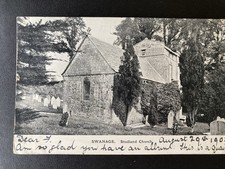 SWANAGE. Studland Church.
Dear F August 29th 190
Am so glad you have an album. This is a